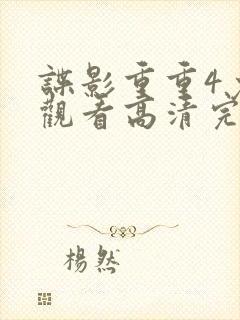 諜影重重4
觀看高清完
楊然